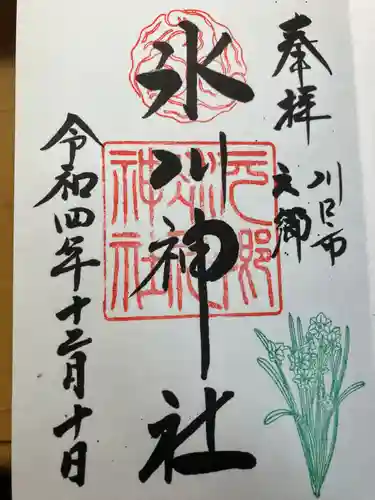 奉拝
川口市
元郷
氷川神社
元郷氷川神社
令和四年十二月十日